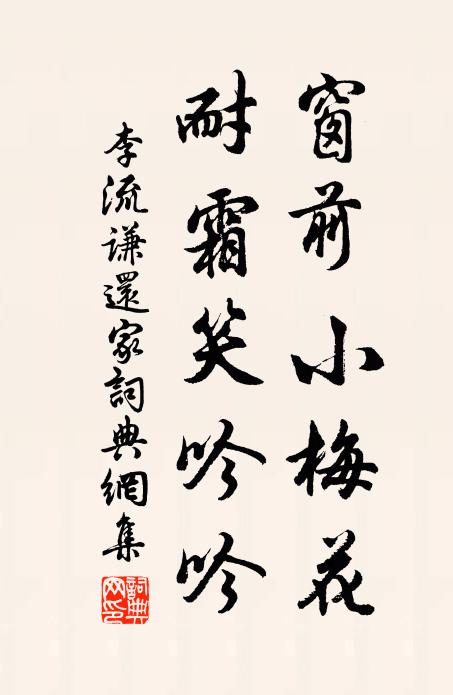 窗前小梅花
耐霜笑吟吟
李流謙還家詞典網集
詞典网印